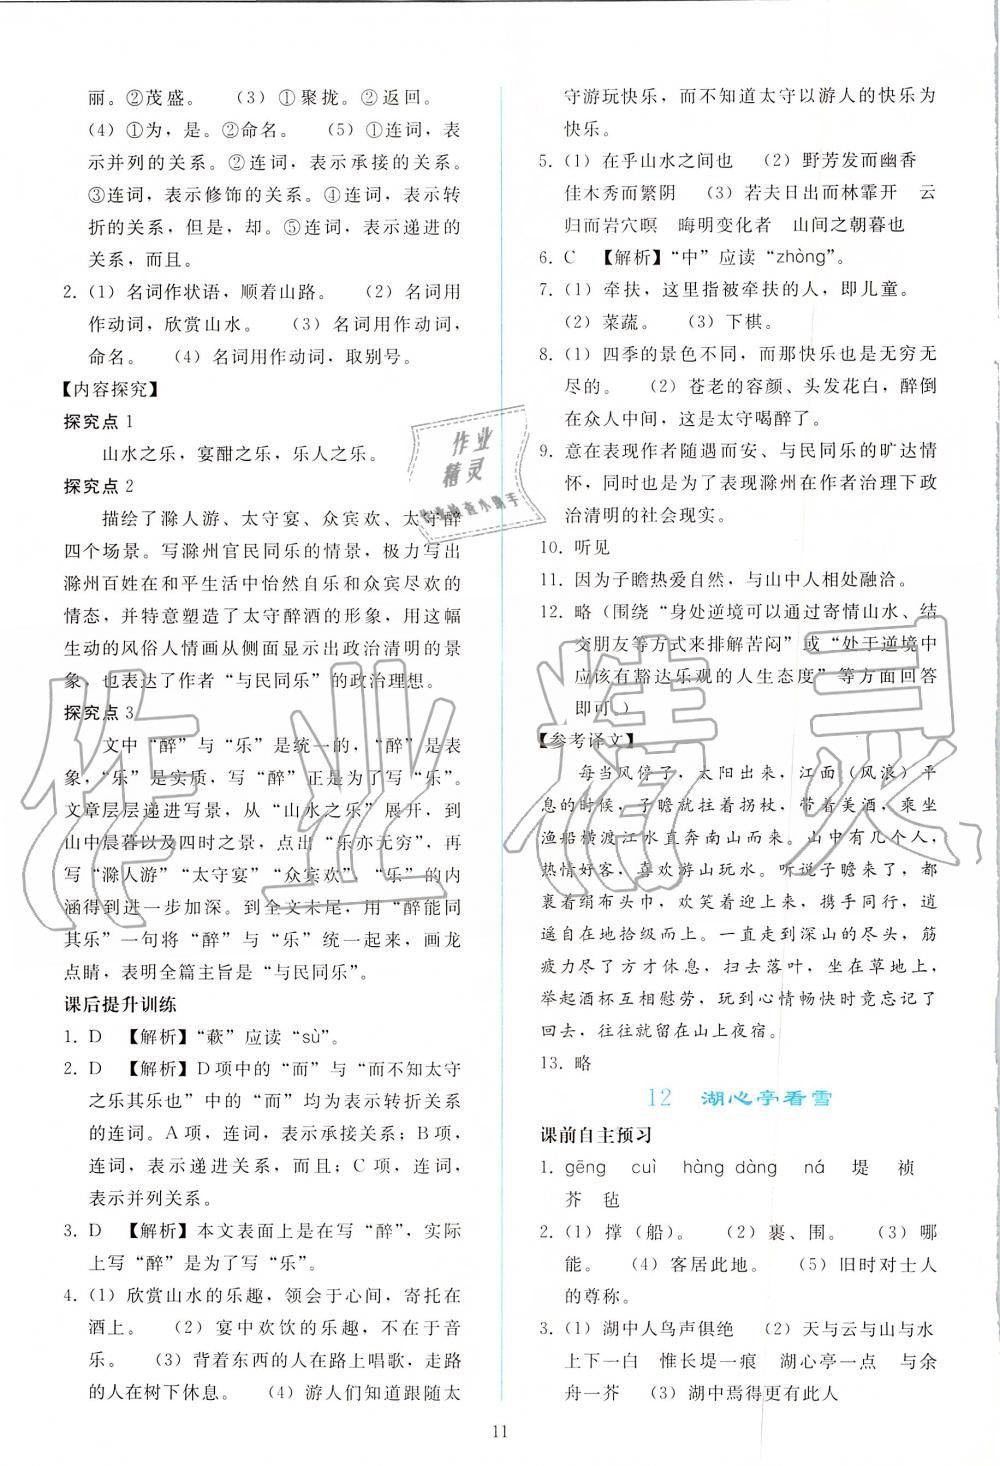 丽。②茂盛。　（3）①聚拢。②返回。
（4）①为，是。②命名。　（5）①连词，表
示并列的关系。②连词，表示承接的关系。
③连词，表示修饰的关系。④连词，表示转
折的关系，但是，却。⑤连词，表示递进的
关系，而且。
2.（1）名词作状语，顺着山路。　（2）名词用
作动词，欣赏山水。　（3）名词用作动词，
命名。　（4）名词用作动词，取别号。
【内容探究】
探究点 1
山水之乐，宴酣之乐，乐人之乐。
探究点 2
描绘了滁人游、太守宴、众宾欢、太守醉
四个场景。写滁州官民同乐的情景，极力写出
滁州百姓在和平生活中怡然自乐和众宾尽欢的
情态，并特意塑造了太守醉酒的形象，用这幅
生动的风俗人情画从侧面显示出政治清明的景
象，也表达了作者“与民同乐”的政治理想。
探究点 3
文中“醉”与“乐”是统一的，“醉”是表
象，“乐”是实质，写“醉”正是为了写“乐”。
文章层层递进写景，从“山水之乐”展开，到
山中晨暮以及四时之景，点出“乐亦无穷”，再
写“滁人游”“太守宴”“众宾欢”，“乐”的内
涵得到进一步加深。到全文末尾，用“醉能同
其乐”一句将“醉”与“乐”统一起来，画龙
点睛，表明全篇主旨是“与民同乐”。
课后提升训练
1. D　【解析】“蔌”应读“sù”。
2. D　【解析】D 项中的“而”与“而不知太守
之乐其乐也”中的“而”均为表示转折关系
的连词。A 项，连词，表示承接关系；B 项，
连词，表示递进关系，而且；C 项，连词，
表示并列关系。
3. D　【解析】本文表面上是在写“醉”，实际
上写“醉”是为了写“乐”。
4.（1）欣赏山水的乐趣，领会于心间，寄托在
酒上。　（2）宴中欢饮的乐趣，不在于音
乐。　（3）背着东西的人在路上唱歌，走路
的人在树下休息。　（4）游人们知道跟随太
守游玩快乐，而不知道太守以游人的快乐为
快乐。
5.（1）在乎山水之间也　（2）野芳发而幽香
佳木秀而繁阴　（3）若夫日出而林霏开　云
归而岩穴暝　晦明变化者　山间之朝暮也
6. C　【解析】“中”应读“zhòng”。
7.（1）牵扶，这里指被牵扶的人，即儿童。
（2）菜蔬。　（3）下棋。
8.（1）四季的景色不同，而那快乐也是无穷无
尽的。　（2）苍老的容颜、头发花白，醉倒
在众人中间，这是太守喝醉了。
9. 意在表现作者随遇而安、与民同乐的旷达情
怀，同时也是为了表现滁州在作者治理下政
治清明的社会现实。
10. 听见
11. 因为子瞻热爱自然，与山中人相处融洽。
12. 略（围绕“身处逆境可以通过寄情山水、结
交朋友等方式来排解苦闷”或“处于逆境中
应该有豁达乐观的人生态度”等方面回答
即可）
【参考译文】
每当风停了，太阳出来，江面（风浪）平
息的时候，子瞻就拄着拐杖，带着美酒，乘坐
渔船横渡江水直奔南山而来。山中有几个人，
热情好客，喜欢游山玩水。听说子瞻来了，都
裹着绢布头巾，欢笑着迎上来，携手同行，逍
遥自在地拾级而上。一直走到深山的尽头，筋
疲力尽了方才休息，扫去落叶，坐在草地上，
举起酒杯互相慰劳，玩到心情畅快时竟忘记了
回去，往往就留在山上夜宿。
13. 略
12　湖心亭看雪
课前自主预习
1. gēng　cuì　hàng dàng　ná　堤　祯
芥　毡
2.（1）撑（船）。　（2）裹、围。　（3）哪
能。　（4）客居此地。　（5）旧时对士人
的尊称。
3.（1）湖中人鸟声俱绝　（2）天与云与山与水
上下一白　惟长堤一痕　湖心亭一点　与余
舟一芥　（3）湖中焉得更有此人
11
作业
精灵
作业精灵